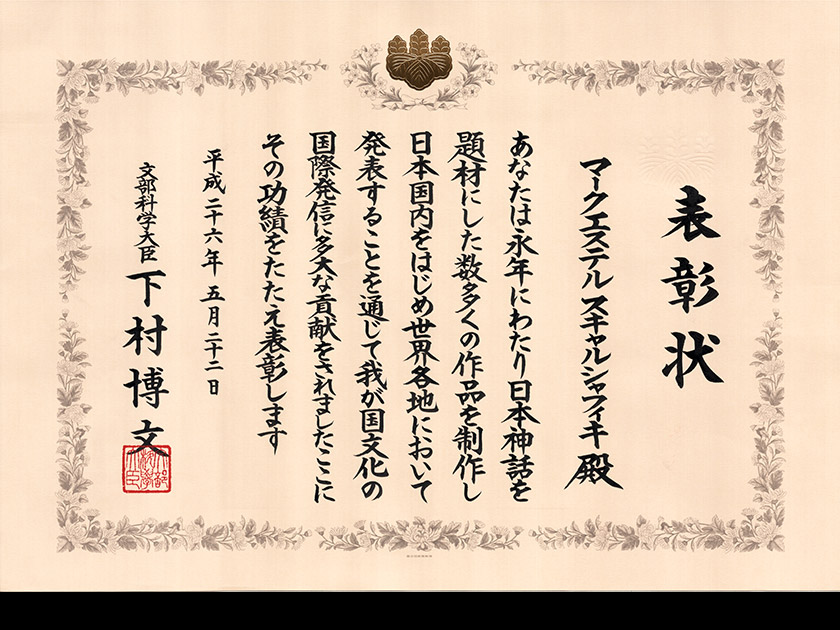 表彰状
マークエステル スキャルシャフィキ 殿
あなたは永年にわたり日本神話を
題材にした数多くの作品を制作し
日本国内をはじめ世界各地において
発表することを通じて我が国文化の
国際発信に多大な貢献をされましたここに
その功績をたたえ表彰します
平成二十六年五月二十二日
文部科学大臣 下村博文